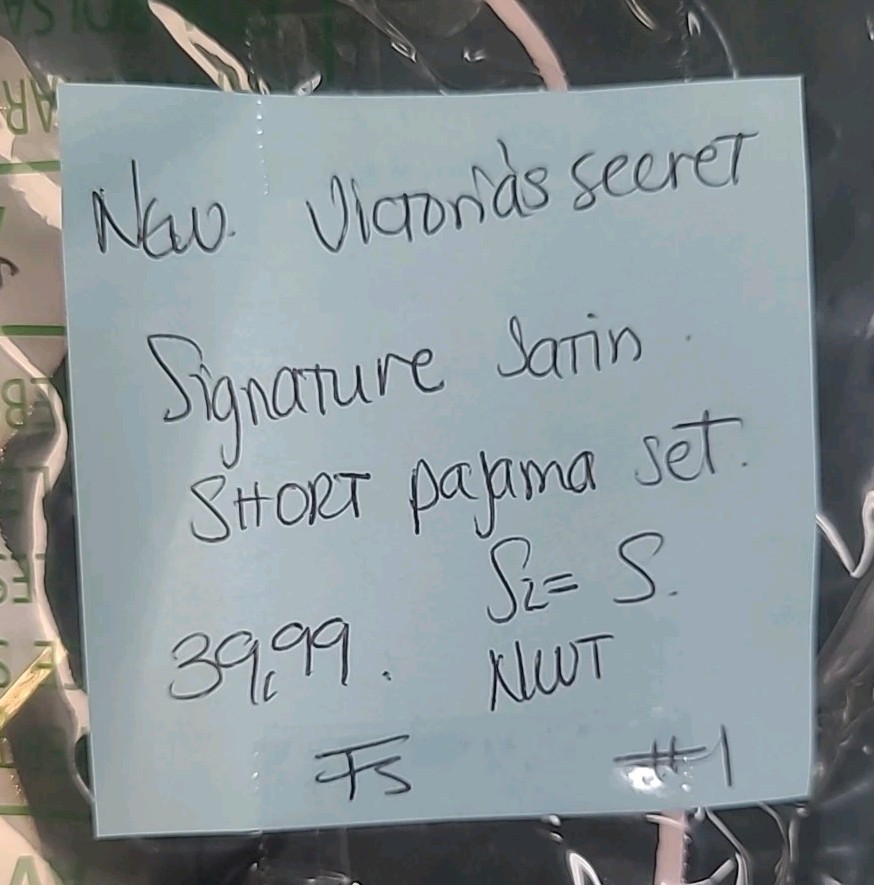 New. Victoria's secret
Signature Satin.
SHORT pajama set.
Sz= S.
39,99. NWT
FS #1